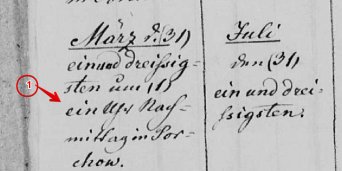 März d. (31)
einund dreissig-
sten um (1)
ein Uhr Nach-
mittag in Tor-
chow.
Juli
den (31)
ein und drei-
ssigsten.
1